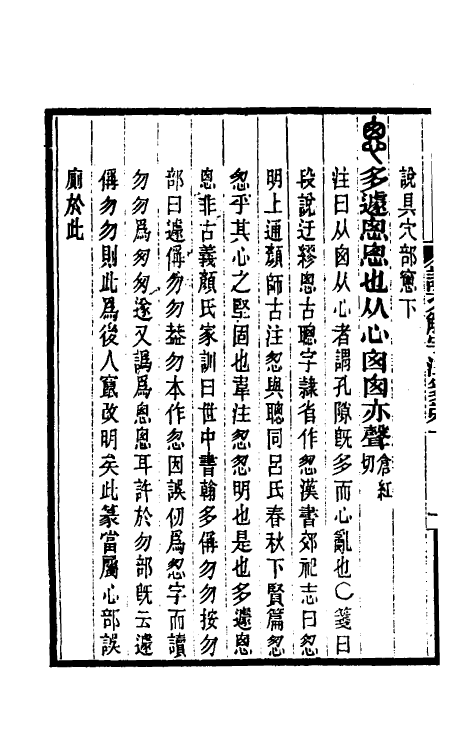 說具穴部窻下
悤多遽悤悤也从心囪囪亦聲倉紅切
注曰从囪从心者謂孔隙旣多而心亂也○箋曰
段說迂繆悤古聰字隷省作怱漢書郊祀志曰怱
明上通顏師古注怱與聰同呂氏春秋下賢篇怱
怱乎其心之堅固也韋注怱怱明也是也多遽悤
悤非古義顏氏家訓曰世中書翰多偁勿勿按勿
部曰遽偁勿勿葢勿本作怱因誤仞爲怱字而讀
勿勿爲匆匆遂又譌爲悤悤耳許於勿部旣云遽
偁勿勿則此爲後人竄改明矣此篆當屬心部誤
廁於此